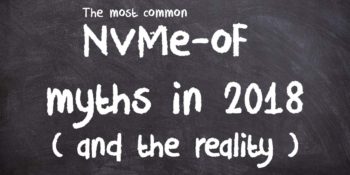 The most common
NVMe-oF
myths in 2018
( and the reality )